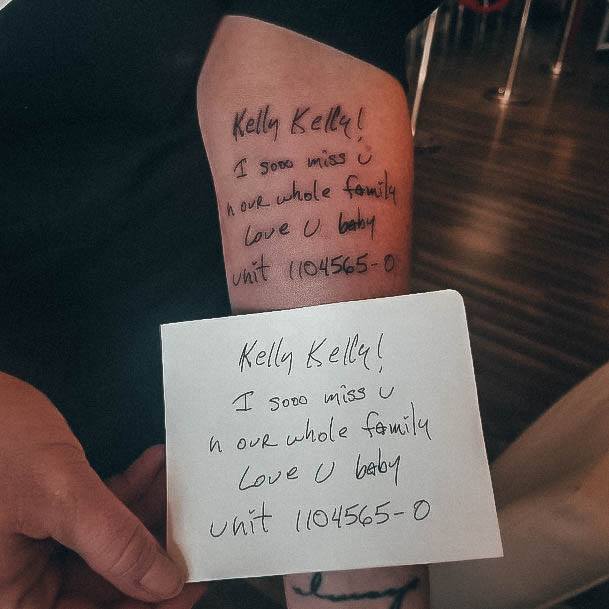 Kelly Kelly!
I sooo miss U
n our whole family
Love U baby
unit 1104565-0
Kelly Kelly!
I sooo miss U
n our whole family
Love U baby
unit 1104565-0